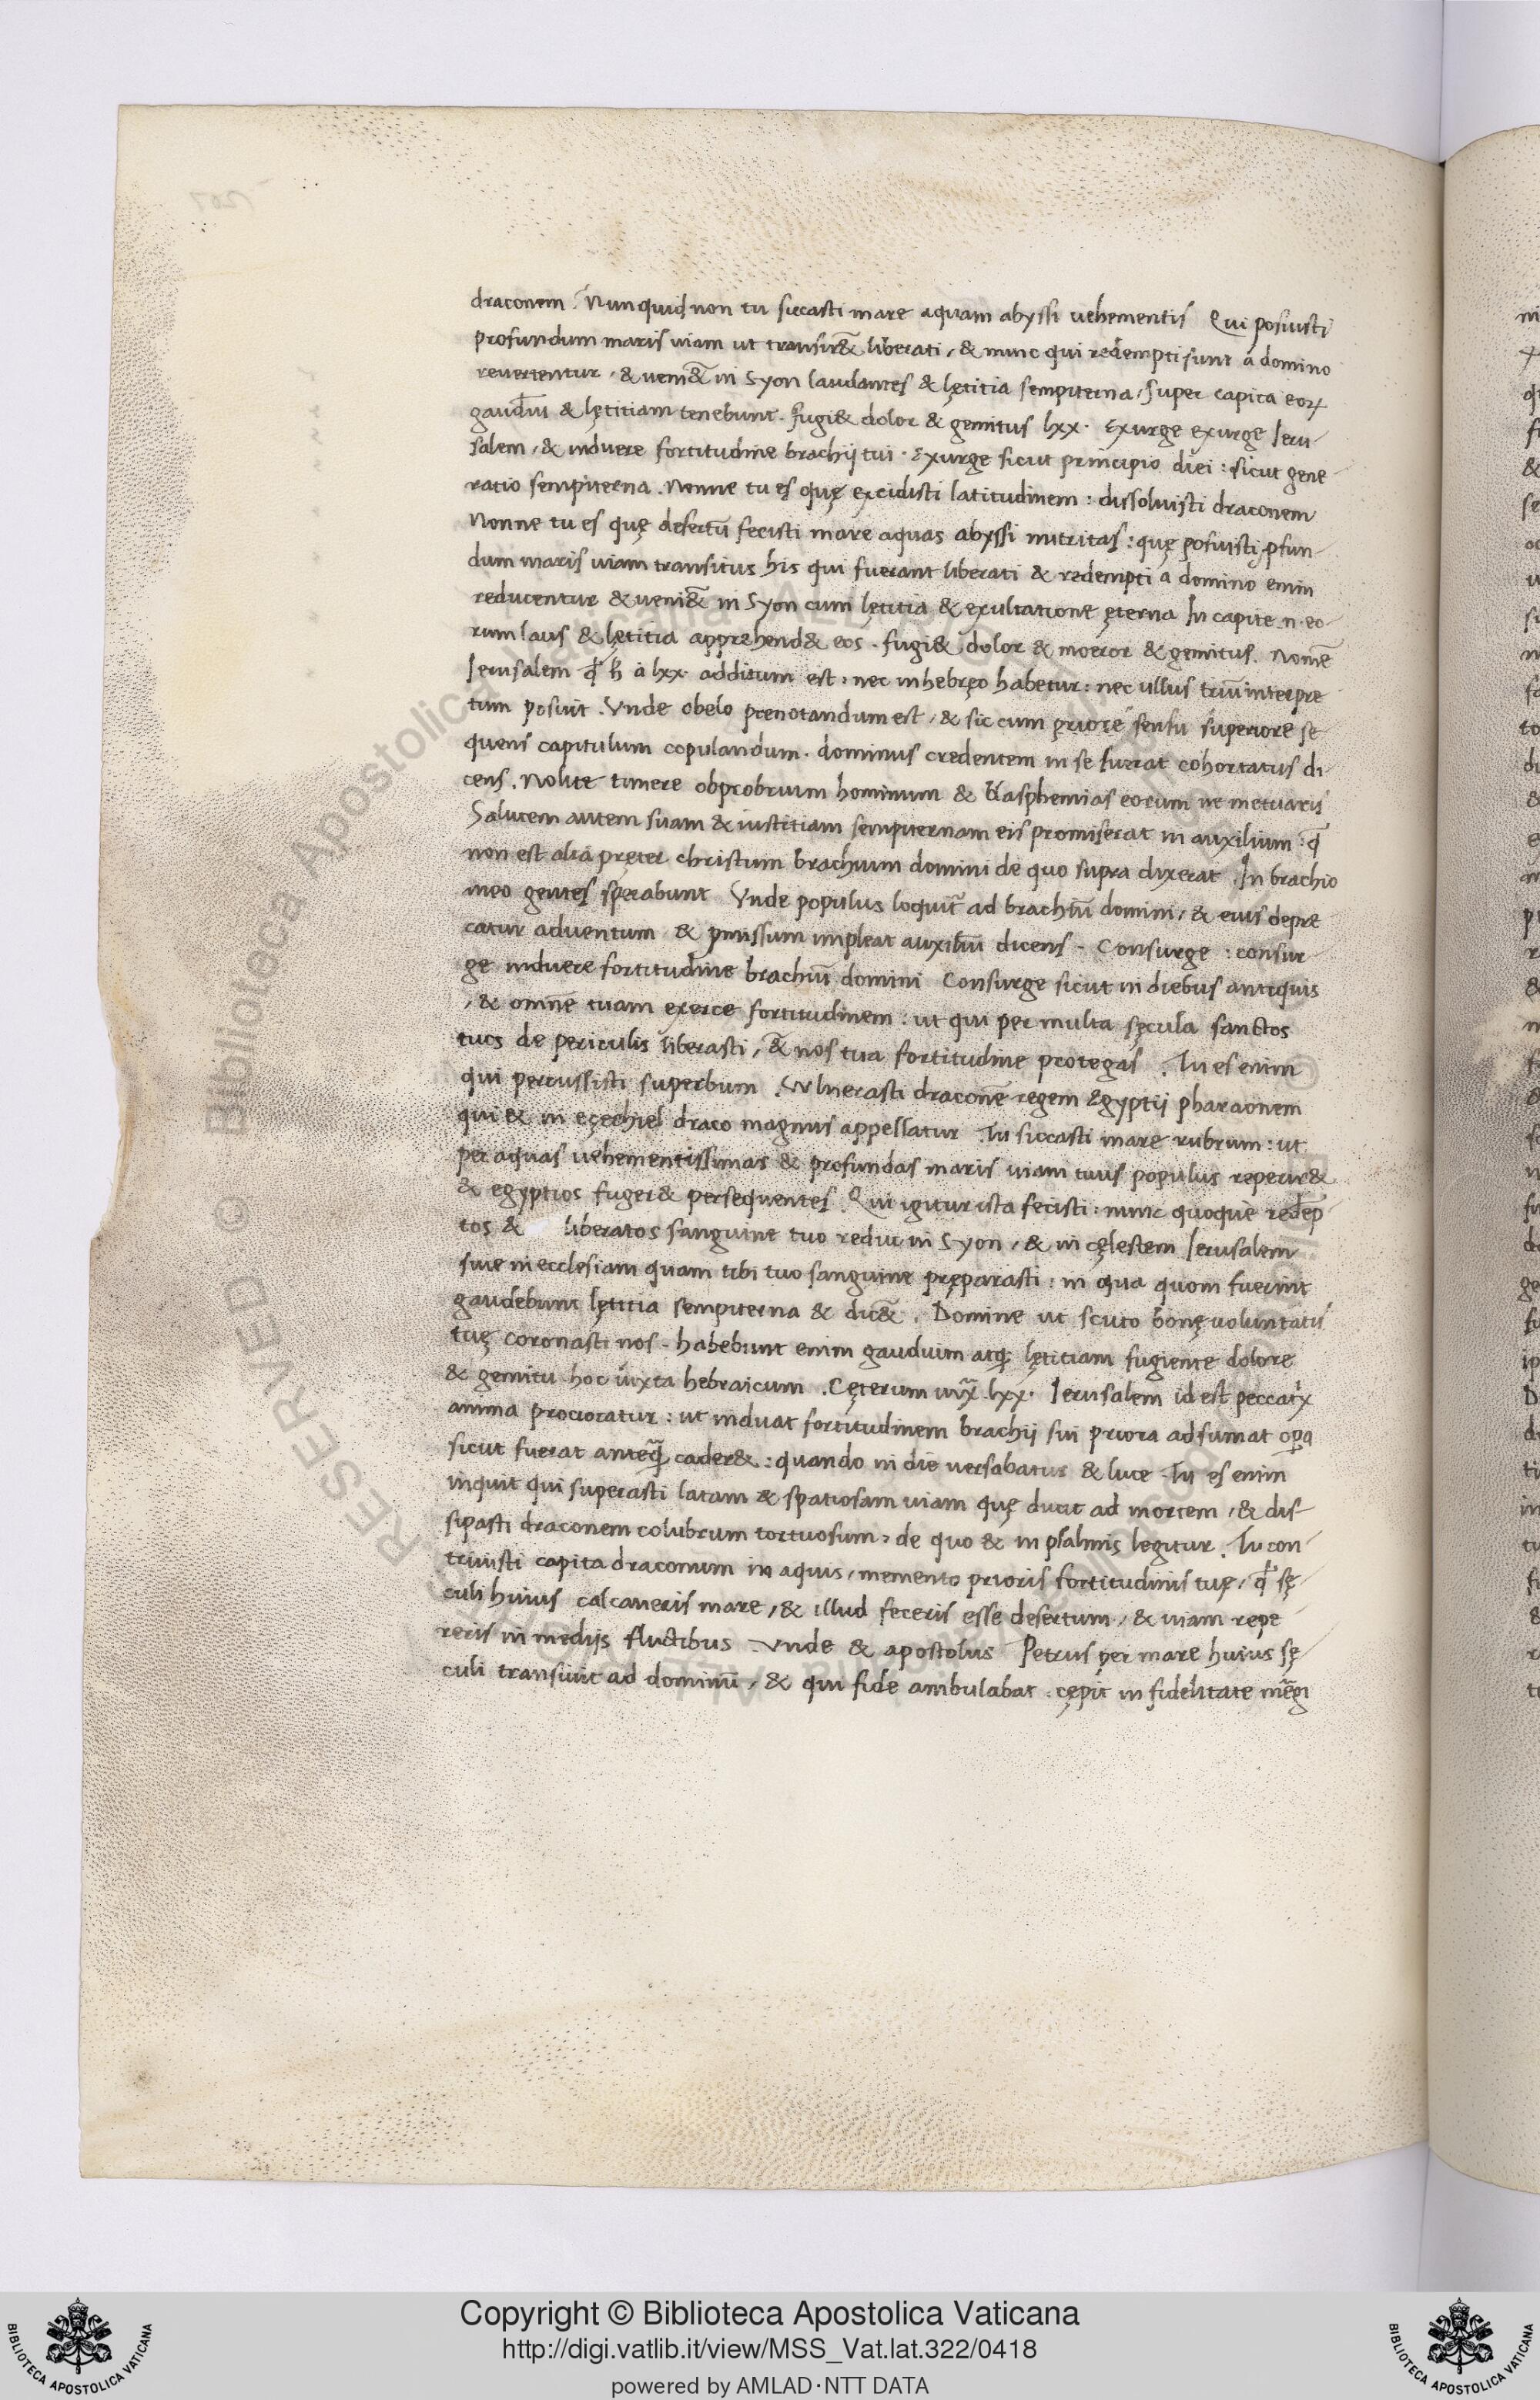 draconem. Nunquid non tu siccasti mare aquam abyssi uehementis Qui posuisti
profundum maris uiam ut transir&̃ liberati, & nunc qui redempti sunt à domino
reuertentur, & ueni&̃ in Syon laudantes & lętitia sempiterna, super capita eoꝝ
gaudiũ & lętitiam tenebunt. fugi& dolor & gemitus lxx. Exurge exurge Ieru-
salem, & induere fortitudine brachij tui. Exurge sicut principio diei: sicut gene-
ratio sempiterna. Nonne tu es quę excidisti latitudinem: dissoluisti draconem
Nonne tu es quę desertũ fecisti mare aquas abyssi nutritas: quę posuisti ꝓfun-
dum maris uiam transitus his qui fuerant liberati & redempti à domino enim
reducentur & ueni&̃ in Syon cum lętitia & exultatione ęterna In capite .n. eo-
rum laus & lętitia apprehend& eos. fugi& dolor & moeror & gemitus. Nomẽ
Ierusalem à lxx. additum est: nec in hebręo habetur: nec ullus triũ interpre
tum posuit. Vnde obelo prenotandum est, & sic cum priore sensu superiore se-
quens capitulum copulandum. dominus credentem in se fuerat cohortatus di-
cens. Nolite timere obprobrium hominum & blasphemias eorum ne metuatis
Salutem autem suam & iustitiam sempiternam eis promiserat in auxilium: q̃
non est alia pręter christum brachium domini de quo supra dixerat. In brachio
meo gentes sperabunt Vnde populus loquit̃ ad brachiũ domini, & eius depre
catur aduentum & ꝓmissum impleat auxiliũ dicens. Consurge: consur-
ge induere fortitudine brachiũ domini Consurge sicut in diebus antiquis
, & omnẽ tuam exerce fortitudinem: ut qui per multa sęcula sanctos
tuos de periculis liberasti, & nos tua fortitudine protegas. Tu es enim
qui percussisti superbum. Vulnerasti draconẽ regem Egyptij pharaonem
qui & in ezechiel draco magnus appellatur Tu siccasti mare rubrum: ut
per aquas uehementissimas & profundas maris uiam tuus populus reperir&
& egyptios fuger& persequentes. Qui igitur ista fecisti: nunc quoque redẽp
tos & liberatos sanguine tuo reduc in Syon, & in cęlestem Ierusalem
siue in ecclesiam quam tibi tuo sanguine pręparasti: in qua quom fuerint
gaudebunt lętitia sempiterna & dic&̃. Domine ut scuto bonę uoluntatis
tuę coronasti nos. habebunt enim gaudium atq; lętitiam fugiente dolore
& gemitu hoc iuxta hebraicum. Cęterum iux̃ lxx. Ierusalem id est peccatⁱx
anima prouocatur: ut induat fortitudinem brachij sui priora adsumat oꝑa
sicut fuerat anteq̃ cader&: quando in die uersabatur & luce Tu es enim
inquit qui superasti latam & spatiosam uiam quę ducit ad mortem, & dis-
sipasti draconem colubrum tortuosum, de quo & in psalmis legitur. Tu con-
triuisti capita draconum in aquis, memento prioris fortitudinis tuę, qᵈ sę-
culi huius calcaueris mare, & illud feceris esse desertum, & uiam repe-
reris in medijs fluctibus Vnde & apostolus Petrus per mare huius sę-
culi transiuit ad dominũ, & qui fide ambulabat. cępit in fidelitate mẽgi
Copyright © Biblioteca Apostolica Vaticana
http://digi.vatlib.it/view/MSS_Vat.lat.322/0418
powered by AMLAD·NTT DATA